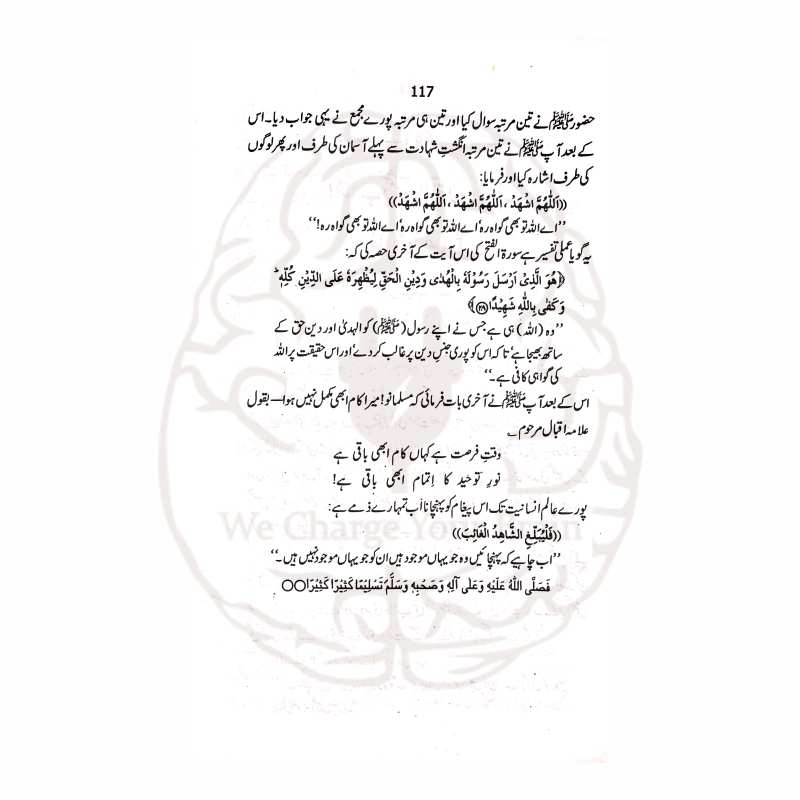 117
حضورﷺ نے تین مرتبہ سوال کیا اور تین ہی مرتبہ پورے مجمع نے یہی جواب دیا۔ اس
کے بعد آپﷺ نے تین مرتبہ انگشتِ شہادت سے پہلے آسمان کی طرف اور پھر لوگوں
کی طرف اشارہ کیا اور فرمایا:
((اَللّٰھُمَّ اشْھَدْ ، اَللّٰھُمَّ اشْھَدْ ، اَللّٰھُمَّ اشْھَدْ))
’’اے اللہ تو بھی گواہ رہ‘ اے اللہ تو بھی گواہ رہ‘ اے اللہ تو بھی گواہ رہ!‘‘
یہ گویا عملی تفسیر ہے سورۃ الفتح کی اس آیت کے آخری حصہ کی کہ:
﴿ھُوَ الَّذِیْ اَرْسَلَ رَسُوْلَہٗ بِالْھُدٰی وَدِیْنِ الْحَقِّ لِیُظْھِرَہٗ عَلَی الدِّیْنِ کُلِّہٖ ؕ
وَکَفٰی بِاللّٰہِ شَھِیْدًا ۝۲۸﴾
’’وہ (اللہ) ہی ہے جس نے اپنے رسول (ﷺ) کو الہدیٰ اور دین حق کے
ساتھ بھیجا ہے‘ تاکہ اس کو پوری جنسِ دین پر غالب کر دے‘ اور اس حقیقت پر اللہ
کی گواہی کافی ہے۔‘‘
اس کے بعد آپﷺ نے آخری بات فرمائی کہ مسلمانو! میرا کام ابھی مکمل نہیں ہوا — بقول
علامہ اقبال مرحوم ؎
وقتِ فرصت ہے کہاں کام ابھی باقی ہے
نورِ توحید کا اِتمام ابھی باقی ہے!
پورے عالم انسانیت تک اس پیغام کو پہنچانا اَب تمہارے ذمے ہے:
((فَلْیُبَلِّغِ الشَّاھِدُ الْغَائِبَ))
’’اب چاہیے کہ پہنچائیں وہ جو یہاں موجود ہیں ان کو جو یہاں موجود نہیں ہیں۔‘‘
فَصَلَّی اللّٰہُ عَلَیْہِ وَعَلٰی آلِہٖ وَصَحْبِہٖ وَسَلَّمَ تَسْلِیْمًا کَثِیْرًا کَثِیْرًا○○
We Charge Your Brain